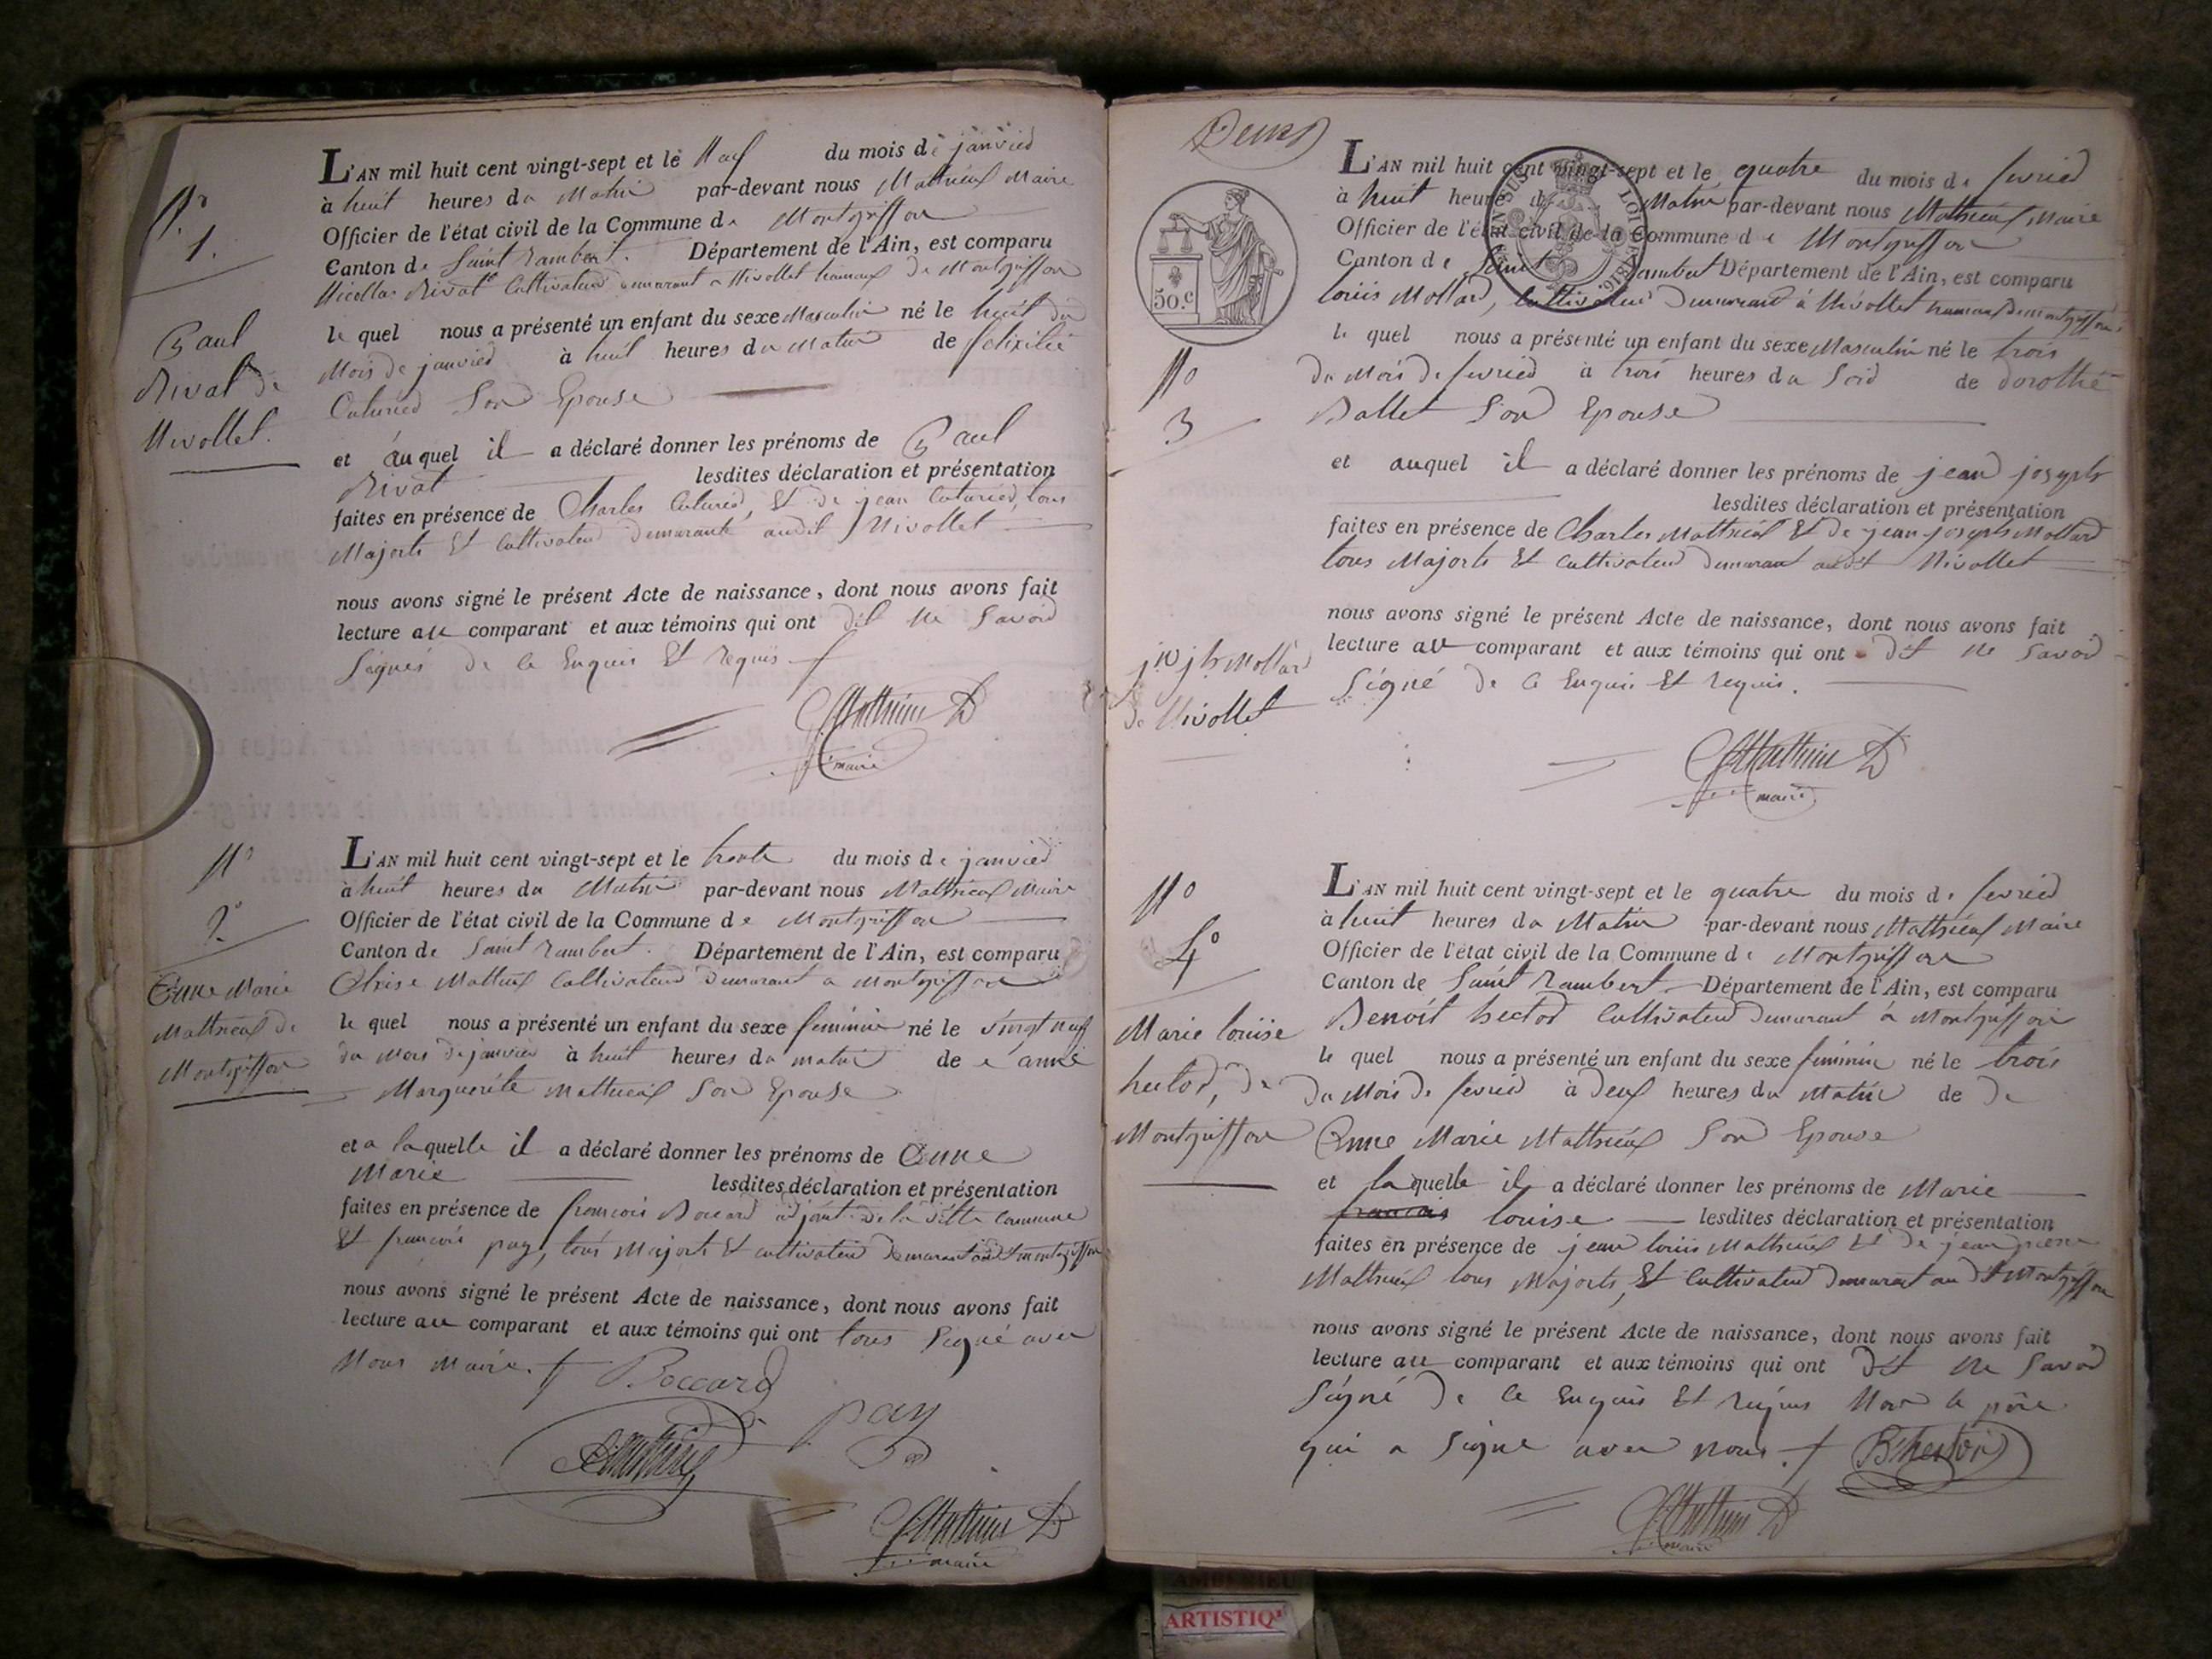 N° 1.
Paul
Rivat de
Nivollet.
L'AN mil huit cent vingt-sept et le Neuf du mois de janvier
à huit heures du Matin par-devant nous Mathieux Maire
Officier de l'état civil de la Commune de Montgriffon
Canton de Saint Rambert. Département de l'Ain, est comparu
Nicollas Rivat Cultivateur demurant a Nivollet hameux de Montgriffon
le quel nous a présenté un enfant du sexe Masculin né le huit du
Mois de janvier à huit heures du Matin de
Son Epouse
et auquel il a déclaré donner les prénoms de Paul
Rivat lesdites déclaration et présentation
faites en présence de Charles et de jean tous
Majorts Et Cultivateur demurant audit Nivollet
nous avons signé le présent Acte de naissance, dont nous avons fait
lecture au comparant et aux témoins qui ont dit ne Savoir
Signés de Ce Enquis Et requis
Mathieu
maire
N° 2.°
Anne Marie
Mathieux de
Montgriffon
L'AN mil huit cent vingt-sept et le trente du mois de janvier
à huit heures du Matin par-devant nous Mathieux Maire
Officier de l'état civil de la Commune de Montgriffon
Canton de Saint Rambert. Département de l'Ain, est comparu
Mathieux Cultivateur demurant a Montgriffon
le quel nous a présenté un enfant du sexe feminin né le vingt neuf
du Mois de janvier à huit heures du matin de
Marguerite Mathieux Son Epouse
et a laquelle il a déclaré donner les prénoms de Anne
Marie lesdites déclaration et présentation
faites en présence de francois Boccard adjoint de la ditte Commune
Et francois pay, tous Majorts Et cultivateur demurant audit montgriffon
nous avons signé le présent Acte de naissance, dont nous avons fait
lecture au comparant et aux témoins qui ont tous Signé avec
Nous Maire.
Boccard
pay
Mathieu
maire
Deux
50.c
LOI 1816.
N° 3
jn jh Mollard
de Nivollet
L'AN mil huit cent vingt-sept et le quatre du mois de fevrier
à huit heures du Matin par-devant nous Mathieux Maire
Officier de l'état civil de la Commune de Montgriffon
Canton de Saint Rambert Département de l'Ain, est comparu
louis Mollard, Cultivateur demurant à Nivollet hameux de montgriffon
le quel nous a présenté un enfant du sexe Masculin né le trois
du Mois de fevrier à trois heures du Soir de dorothé
Ballet Son Epouse
et auquel il a déclaré donner les prénoms de jean joseph
lesdites déclaration et présentation
faites en présence de Charles Mathieux Et de jean joseph Mollard
tous Majorts Et Cultivateur demurant audit Nivollet
nous avons signé le présent Acte de naissance, dont nous avons fait
lecture au comparant et aux témoins qui ont dit ne Savoir
Signé de Ce Enquis Et requis.
Mathieu
maire
N° 4°
Marie louise
hector, de
Montgriffon
L'AN mil huit cent vingt-sept et le quatre du mois de fevrier
à huit heures du Matin par-devant nous Mathieux Maire
Officier de l'état civil de la Commune de Montgriffon
Canton de Saint Rambert Département de l'Ain, est comparu
Benoit hector Cultivateur demurant à Montgriffon
le quel nous a présenté un enfant du sexe feminin né le trois
du Mois de fevrier à deux heures du Matin de de
Anne Marie Mathieux Son Epouse
et laquelle il a déclaré donner les prénoms de Marie
louise lesdites déclaration et présentation
faites en présence de jean louis Mathieux Et de jean pierre
Mathieux tous Majorts, Et Cultivateur demurant au dit Montgriffon
nous avons signé le présent Acte de naissance, dont nous avons fait
lecture au comparant et aux témoins qui ont dit ne Savoir
Signé de Ce Enquis Et requis Non le père
qui a signé avec nous.
B hector
Mathieu
maire
ARTISTIQ